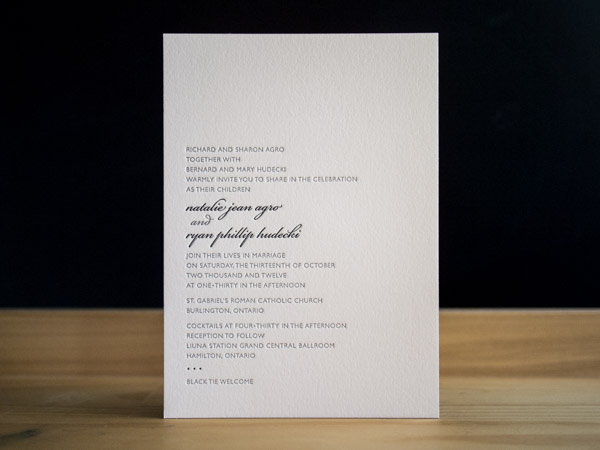 RICHARD AND SHARON AGRO
TOGETHER WITH
BERNARD AND MARY HUDECKI
WARMLY INVITE YOU TO SHARE IN THE CELEBRATION
AS THEIR CHILDREN
natalie jean agro
and
ryan phillip hudecki
JOIN THEIR LIVES IN MARRIAGE
ON SATURDAY, THE THIRTEENTH OF OCTOBER
TWO THOUSAND AND TWELVE
AT ONE-THIRTY IN THE AFTERNOON
ST. GABRIEL'S ROMAN CATHOLIC CHURCH
BURLINGTON, ONTARIO
COCKTAILS AT FOUR-THIRTY IN THE AFTERNOON
RECEPTION TO FOLLOW
LIUNA STATION GRAND CENTRAL BALLROOM
HAMILTON, ONTARIO
•••
BLACK TIE WELCOME